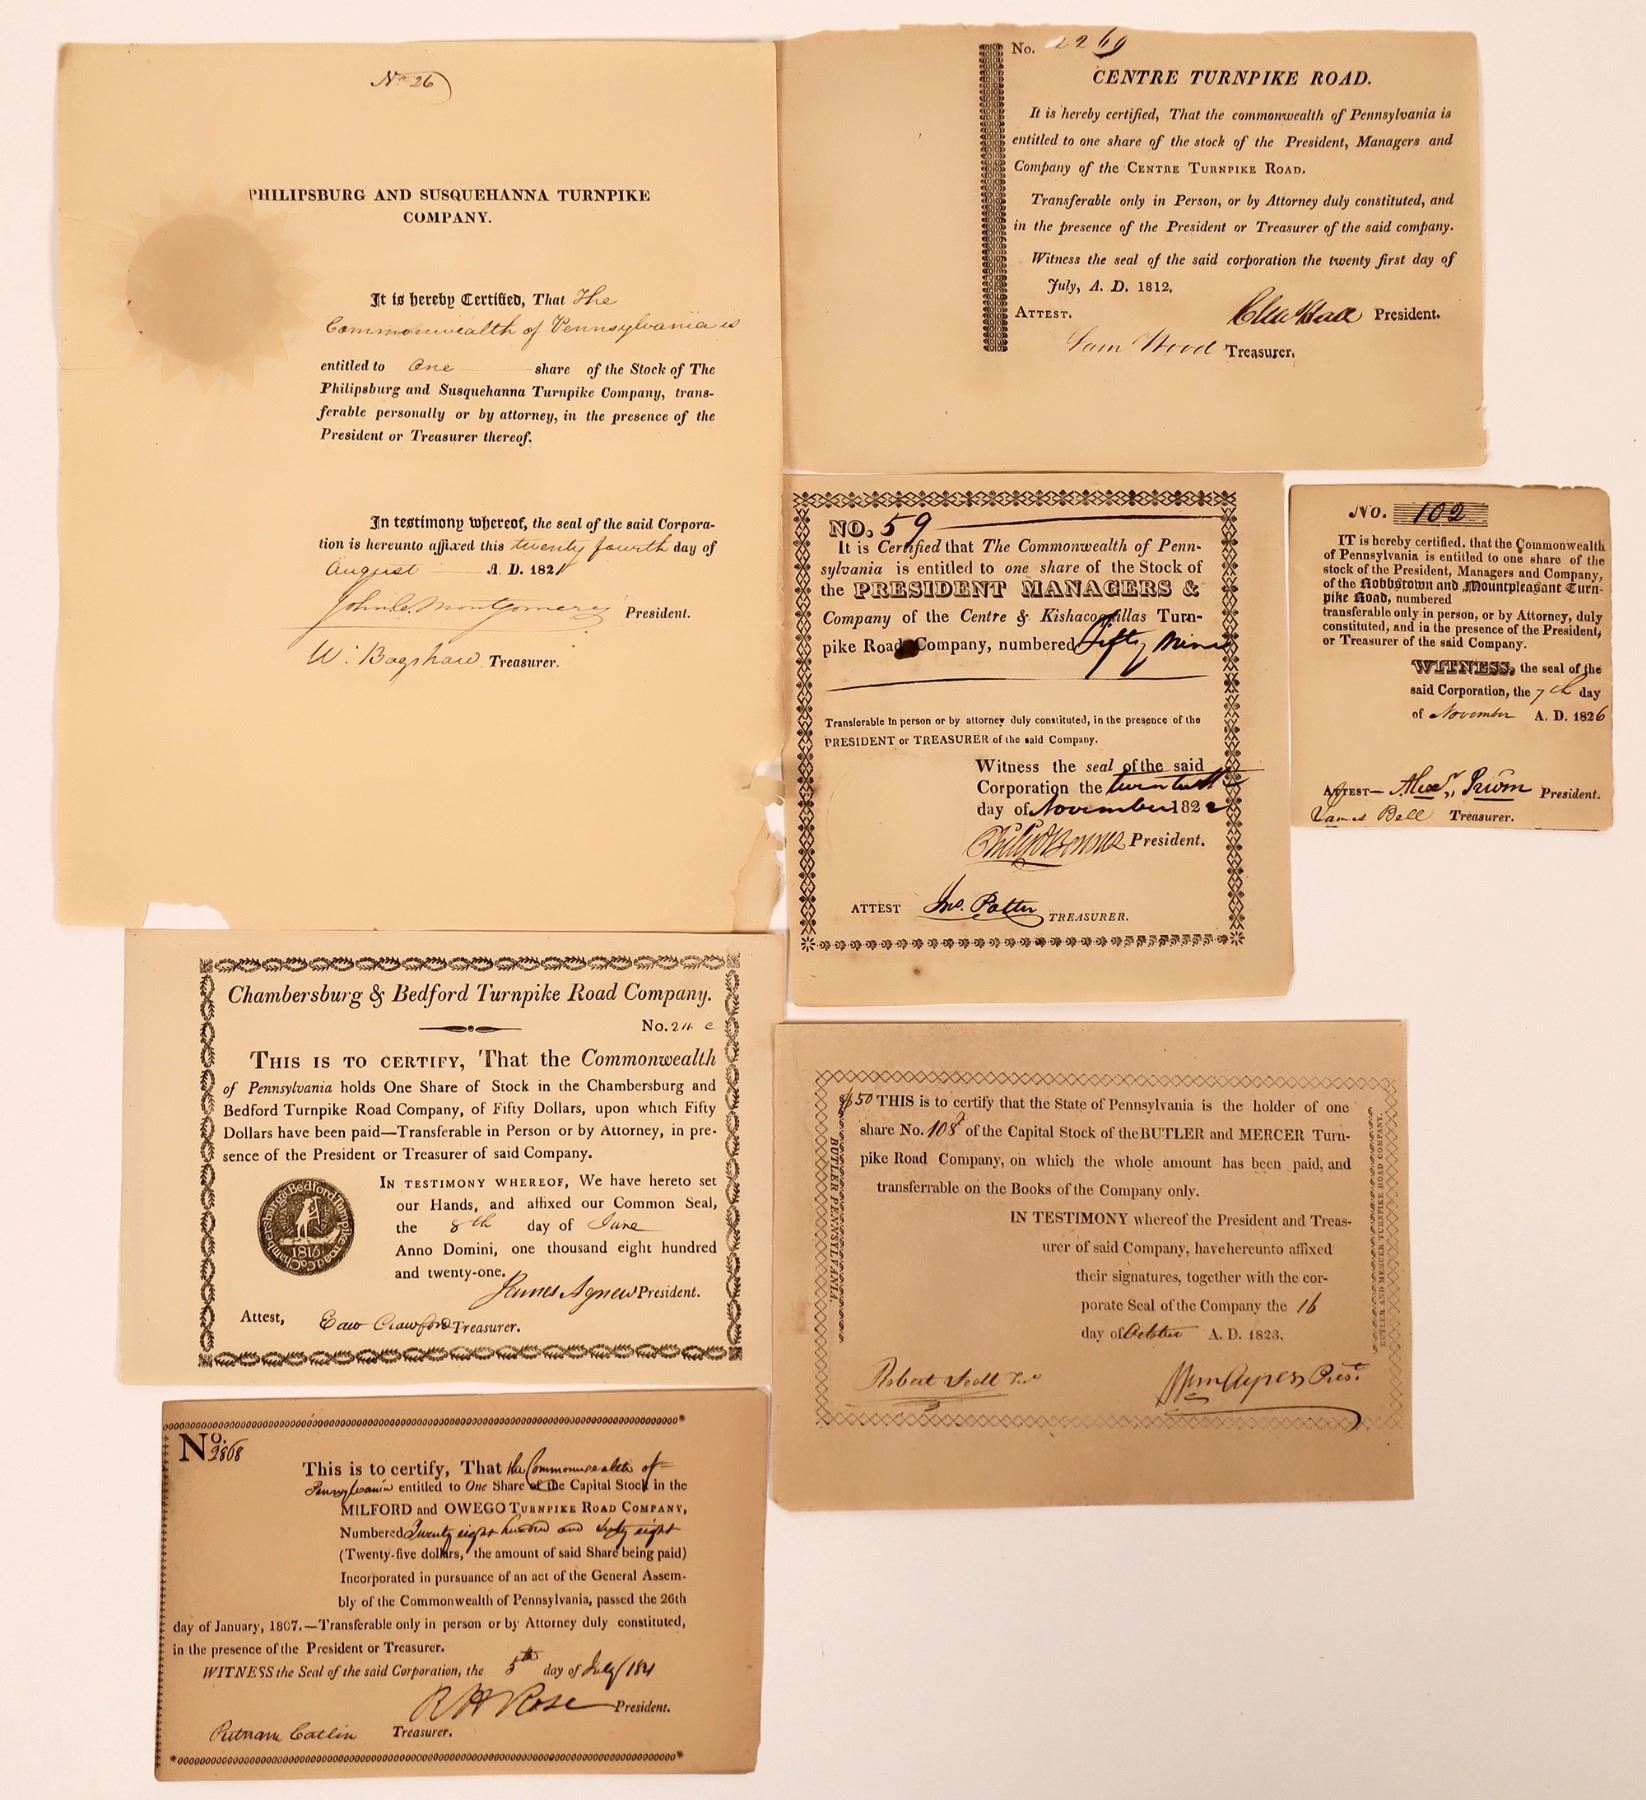 No 26
PHILIPSBURG AND SUSQUEHANNA TURNPIKE
COMPANY.
It is hereby Certified, That The
Commonwealth of Pennsylvania is
entitled to One share of the Stock of The
Philipsburg and Susquehanna Turnpike Company, trans-
ferable personally or by attorney, in the presence of the
President or Treasurer thereof.
In testimony whereof, the seal of the said Corpora-
tion is hereunto affixed this twenty fourth day of
August A. D. 1821
John C. Montgomery President.
W. Bagshaw Treasurer.
No. 2269
CENTRE TURNPIKE ROAD.
It is hereby certified, That the commonwealth of Pennsylvania is
entitled to one share of the stock of the President, Managers and
Company of the CENTRE TURNPIKE ROAD.
Transferable only in Person, or by Attorney duly constituted, and
in the presence of the President or Treasurer of the said company.
Witness the seal of the said corporation the twenty first day of
July, A. D. 1812.
ATTEST. President.
Sam Wood Treasurer.
NO. 59
It is Certified that The Commonwealth of Penn-
sylvania is entitled to one share of the Stock of
the PRESIDENT MANAGERS &
Company of the Centre & Kishacoquillas Turn-
pike Road Company, numbered Fifty Nine
Transferable in person or by attorney duly constituted, in the presence of the
PRESIDENT or TREASURER of the said Company.
Witness the seal of the said
Corporation the twentieth
day of November 1822
President.
ATTEST Jno. Potter TREASURER.
NO. 102
IT is hereby certified, that the Commonwealth
of Pennsylvania is entitled to one share of the
stock of the President, Managers and Company,
of the Robbstown and Mountpleasant Turn-
pike Road, numbered
transferable only in person, or by Attorney, duly
constituted, and in the presence of the President,
or Treasurer of the said Company.
WITNESS, the seal of the
said Corporation, the 7th day
of November A. D. 1826
ATTEST— President.
James Bell Treasurer.
Chambersburg & Bedford Turnpike Road Company.
No.
THIS IS TO CERTIFY, That the Commonwealth
of Pennsylvania holds One Share of Stock in the Chambersburg and
Bedford Turnpike Road Company, of Fifty Dollars, upon which Fifty
Dollars have been paid—Transferable in Person or by Attorney, in pre-
sence of the President or Treasurer of said Company.
IN TESTIMONY WHEREOF, We have hereto set
our Hands, and affixed our Common Seal,
the 8th day of June
Anno Domini, one thousand eight hundred
and twenty-one.
James Agnew President.
Attest, Edw Crawford Treasurer.
Chambersburg & Bedford Turnpike road Co
1815
$50 THIS is to certify that the State of Pennsylvania is the holder of one
share No. 108 of the Capital Stock of the BUTLER and MERCER Turn-
pike Road Company, on which the whole amount has been paid, and
transferrable on the Books of the Company only.
IN TESTIMONY whereof the President and Treas-
urer of said Company, have hereunto affixed
their signatures, together with the cor-
porate Seal of the Company the 16
day of October A. D. 1823.
Robert Scott Wm Ayres Prest.
BUTLER PENNSYLVANIA.
BUTLER AND MERCER TURNPIKE ROAD COMPANY.
No. 2868
This is to certify, That the Commonwealth of
Pennsylvania entitled to One Share of the Capital Stock in the
MILFORD and OWEGO TURNPIKE ROAD COMPANY,
Numbered Twenty eight hundred and sixty eight
(Twenty-five dollars, the amount of said Share being paid)
Incorporated in pursuance of an act of the General Assem-
bly of the Commonwealth of Pennsylvania, passed the 26th
day of January, 1807.—Transferable only in person or by Attorney duly constituted,
in the presence of the President or Treasurer.
WITNESS the Seal of the said Corporation, the 5th day of July
R H Rose President.
Putnam Catlin Treasurer.